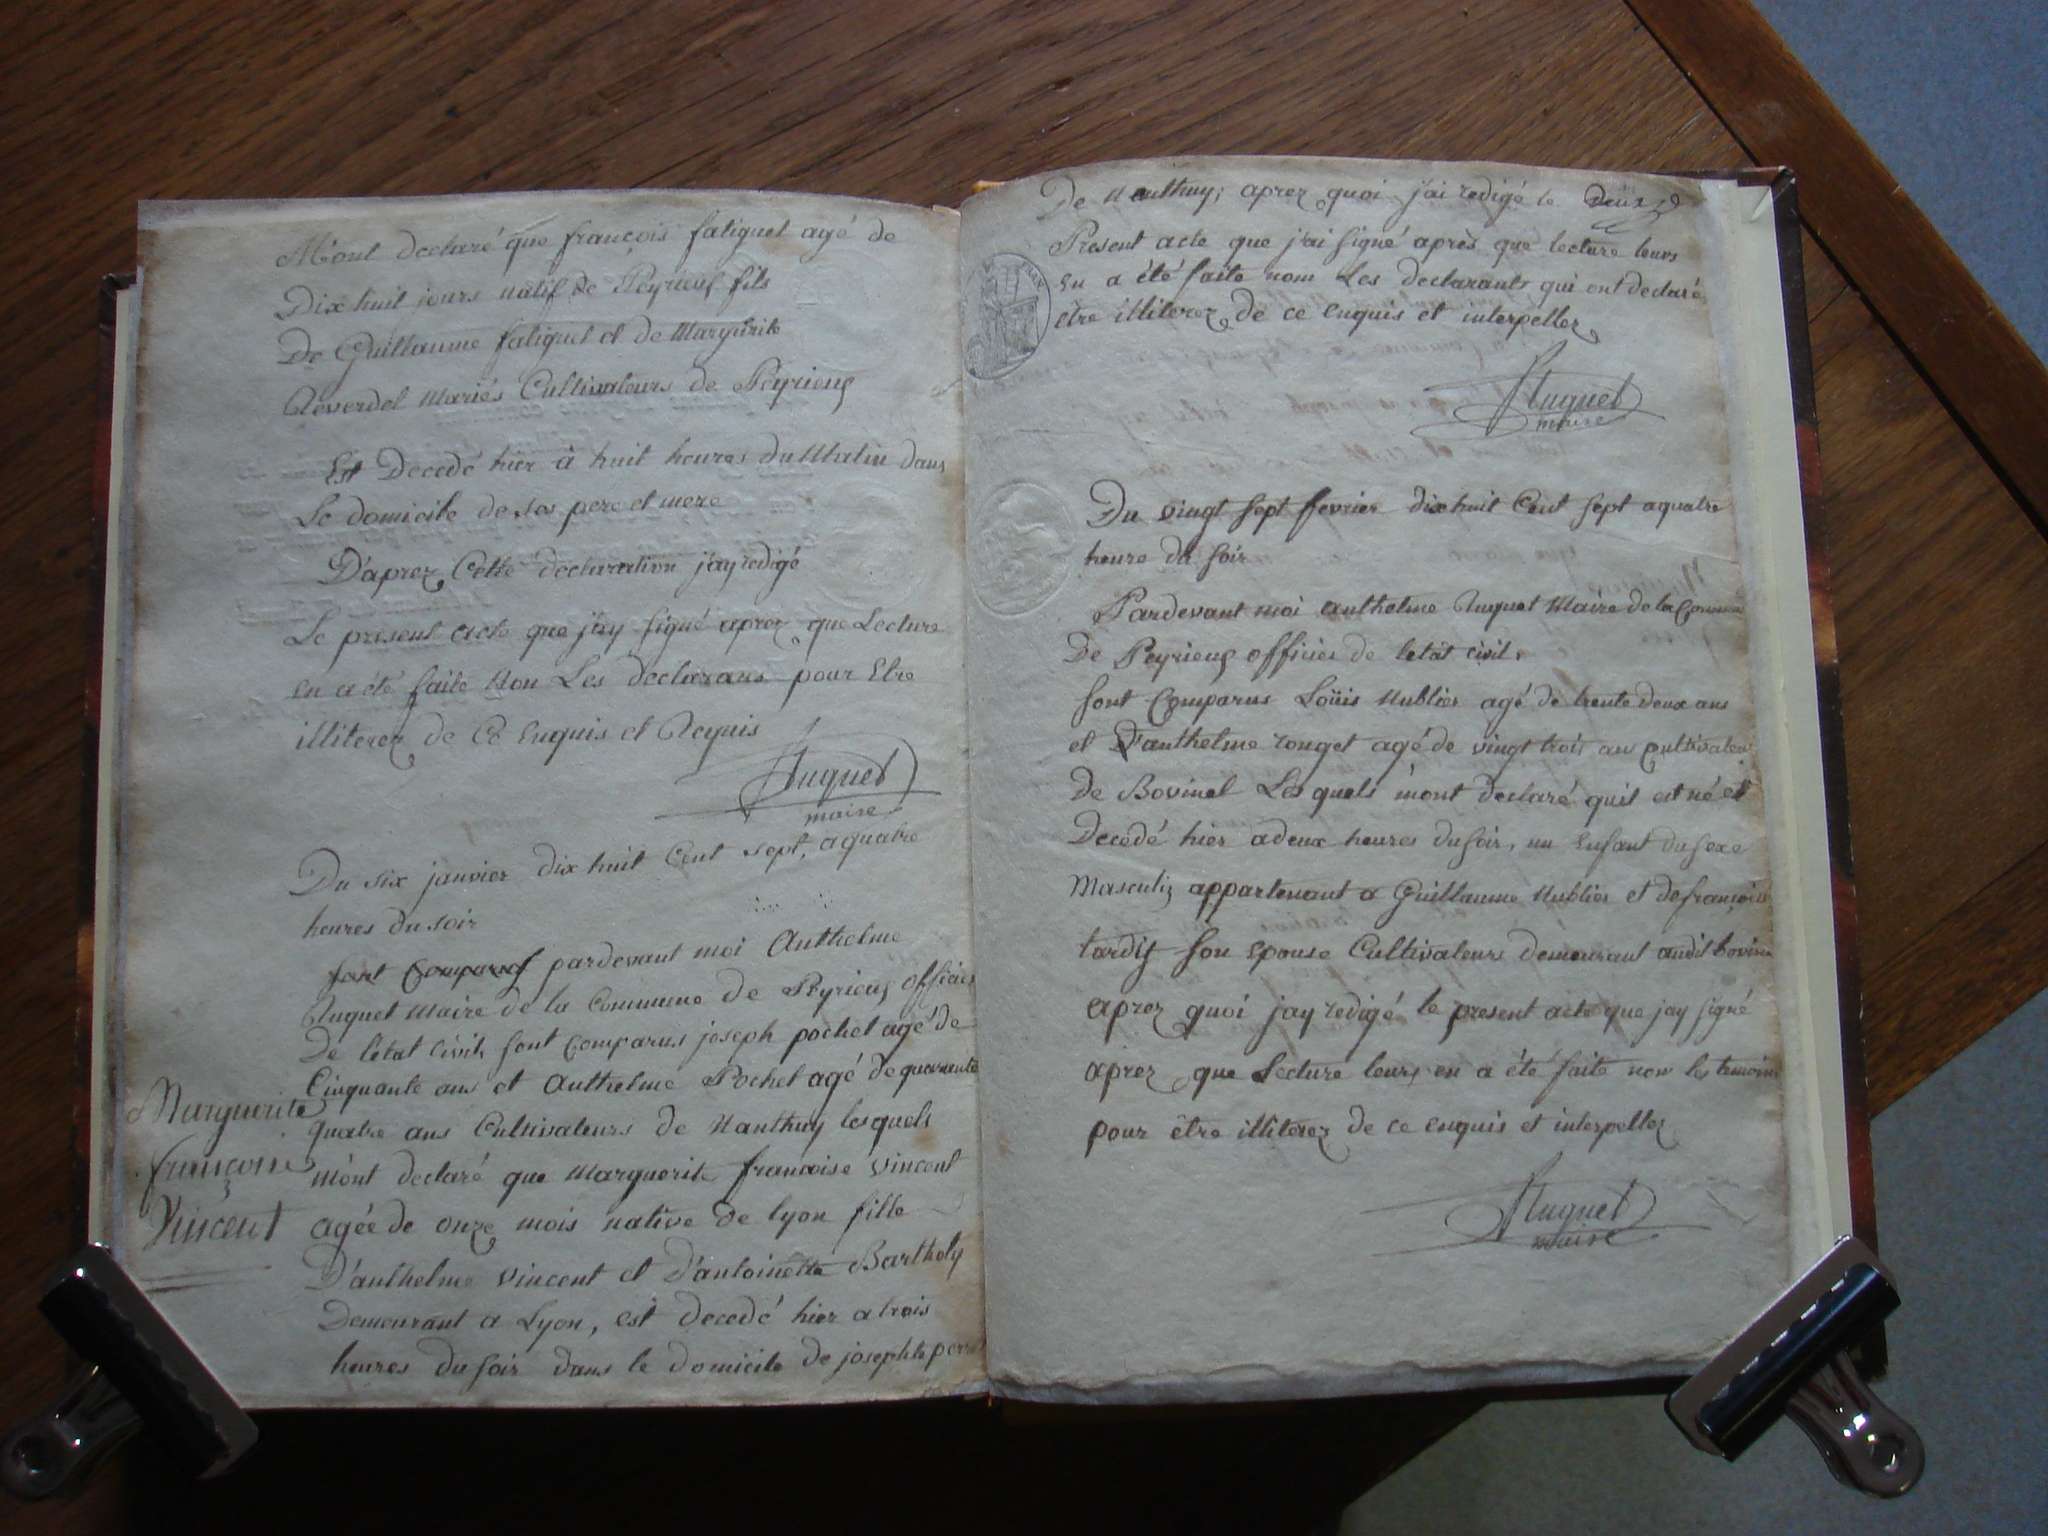 M'ont declaré que françois fatiguet agé de
Dix huit jours natif de Peyrieux fils
De Guillaume fatiguet et de Margurite
Reverdel Mariés Cultivateurs de Peyrieux
Est Decedé hier à huit heures Du Matin dans
Le domicile de ses pere et mere
D'aprez Cette declaration j'ay redigé
Le present acte que j'ay signé aprez que Lecture
en a été faite Non Les declarans pour Etre
illiterez de Ce Enquis et Requis
Huguet
maire
Du six janvier dix huit Cent sept, a quatre
heures du soir
pardevant moi Anthelme
Huguet Maire de la Commune de Peyrieux officier
De l'etat Civil, sont Comparus joseph pochet agé de
Cinquante ans et Anthelme Pochet agé de quarante
quatre ans Cultivateurs de Nanthuy lesquels
m'ont declaré que Marguerite francoise Vincent
agée de onze mois native de Lyon fille
D'anthelme Vincent et D'antoinette Barthely
Demeurant a Lyon, est decedé hier a trois
heures du soir dans le domicile de josephte
Marguerite
françoise
Vincent
De Nanthuy; aprez quoi j'ai redigé le
Present acte que j'ai signé après que lecture leurs
en a été faite nom Les declarants qui ont declaré
etre illiterez de ce enquis et interpellez
Huguet
maire
Du vingt sept fevrier dix huit Cent sept a quatre
heure du soir
Pardevant moi anthelme Huguet Maire de la Commune
De Peyrieux officier de l'etat civil,
sont Comparus Loüis Nublier agé de trente deux ans
et D'anthelme rouget agé de vingt trois ans Cultivateur
de Bovinel Les quels m'ont declaré quil est né et
Decedé hier a deux heures du soir, un Enfant du sexe
Masculin appartenant a Guillaume Nublier et de françoise
tardiy son epouse Cultivateurs demeurant audit bovinel
aprez quoi j'ay redigé le present acte que j'ay signé
aprez que Lecture leurs en a été faite non les temoins
pour être illiterez de ce enquis et interpellez
Huguet
maire